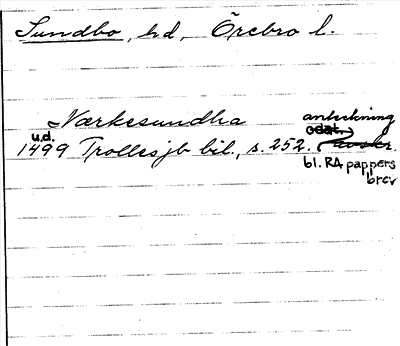 Sundbo, hd, Örebro l.
Närkesundha anteckning
u.d. odat.
1499 Trolles jb bil., s. 252. avskr.
bl. RA pappers
brev